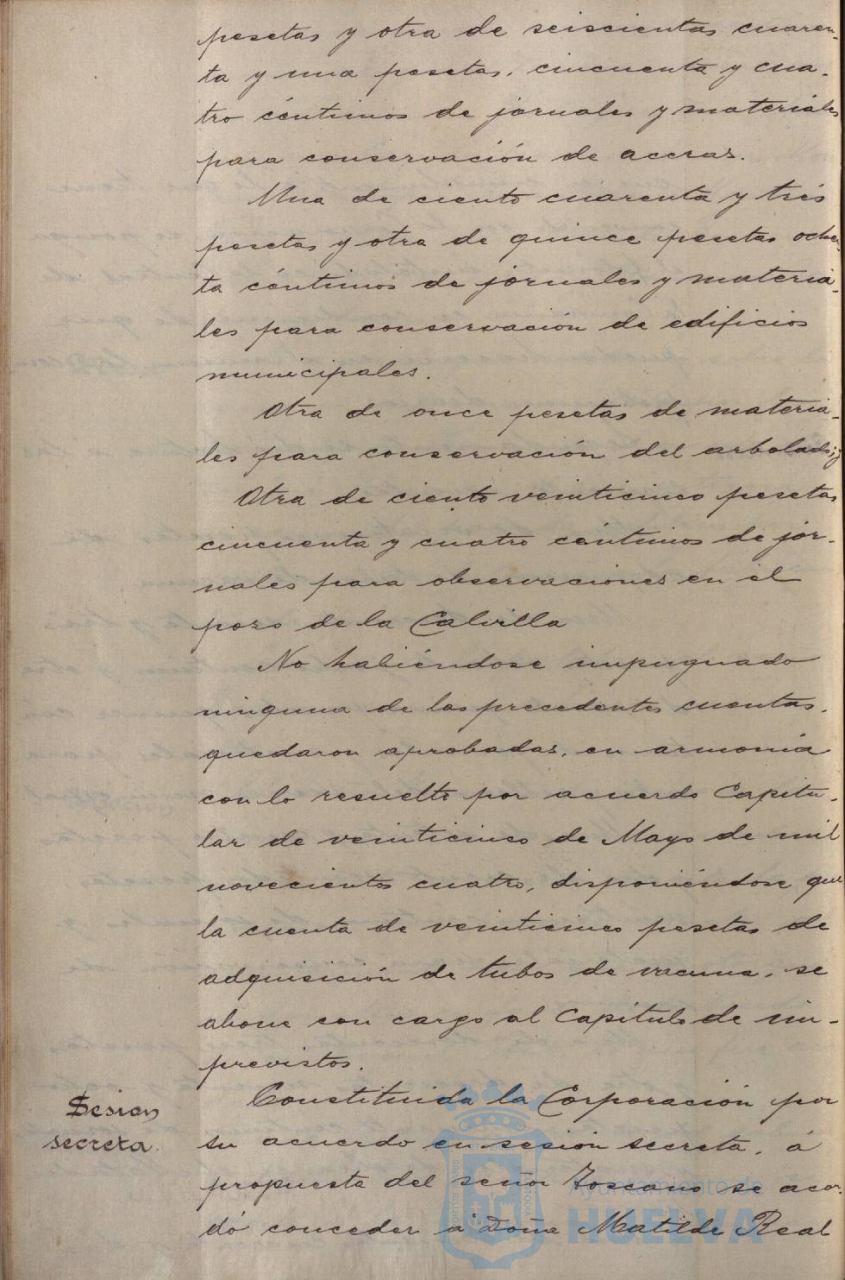 pesetas y otra de seiscientas cuaren-
ta y una pesetas, cincuenta y cua-
tro céntimos de jornales y materiáles
para conservación de aceras.
Una de ciento cuarenta y trés
pesetas y otra de quince pesetas ochen-
ta céntimos de jornales y materia-
les para conservación de edificios
municipales.
Otra de once pesetas de materia-
les para conservación del arbolado; y
Otra de ciento veinticinco pesetas
cincuenta y cuatro céntimos de jor-
nales para observaciones en el
pozo de la Calvilla
No habiéndose impugnado
ninguna de las precedentes cuentas,
quedaron aprobadas, en armonía
con lo resuelto por acuerdo Capitu-
lar de veinticinco de Mayo de mil
novecientos cuatro, disponiéndose que
la cuenta de veinticinco pesetas de
adquisición de tubos de vacuna, se
abone con cargo al Capítulo de im-
previstos.
Sesion
secreta.
Constituida la Corporación por
su acuerdo en sesión secreta, á
propuesta del señor Toscano se acor-
dó conceder á Doña Matilde Real
Ayuntamiento de
HUELVA